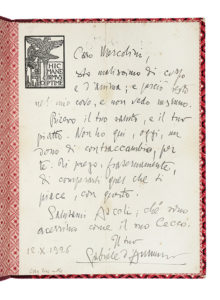 HIC
MANE
BIMVS
OPTIME
Caro Marcolini,
sto malissimo di corpo
e d'anima; e perciò resto
nel mio covo, e non vedo nessuno.
Ricevo il tuo saluto, e il tuo
piatto. Non ho qui, oggi, un
dono di contraccambio, per
te. Ti prego, fraternamente,
di comprarti quel che ti
piace, con questo.
Salutami Ascoli; che sono
come il mio Cecco.
Il tuo
Gabriele d'Annunzio
12.X.1926